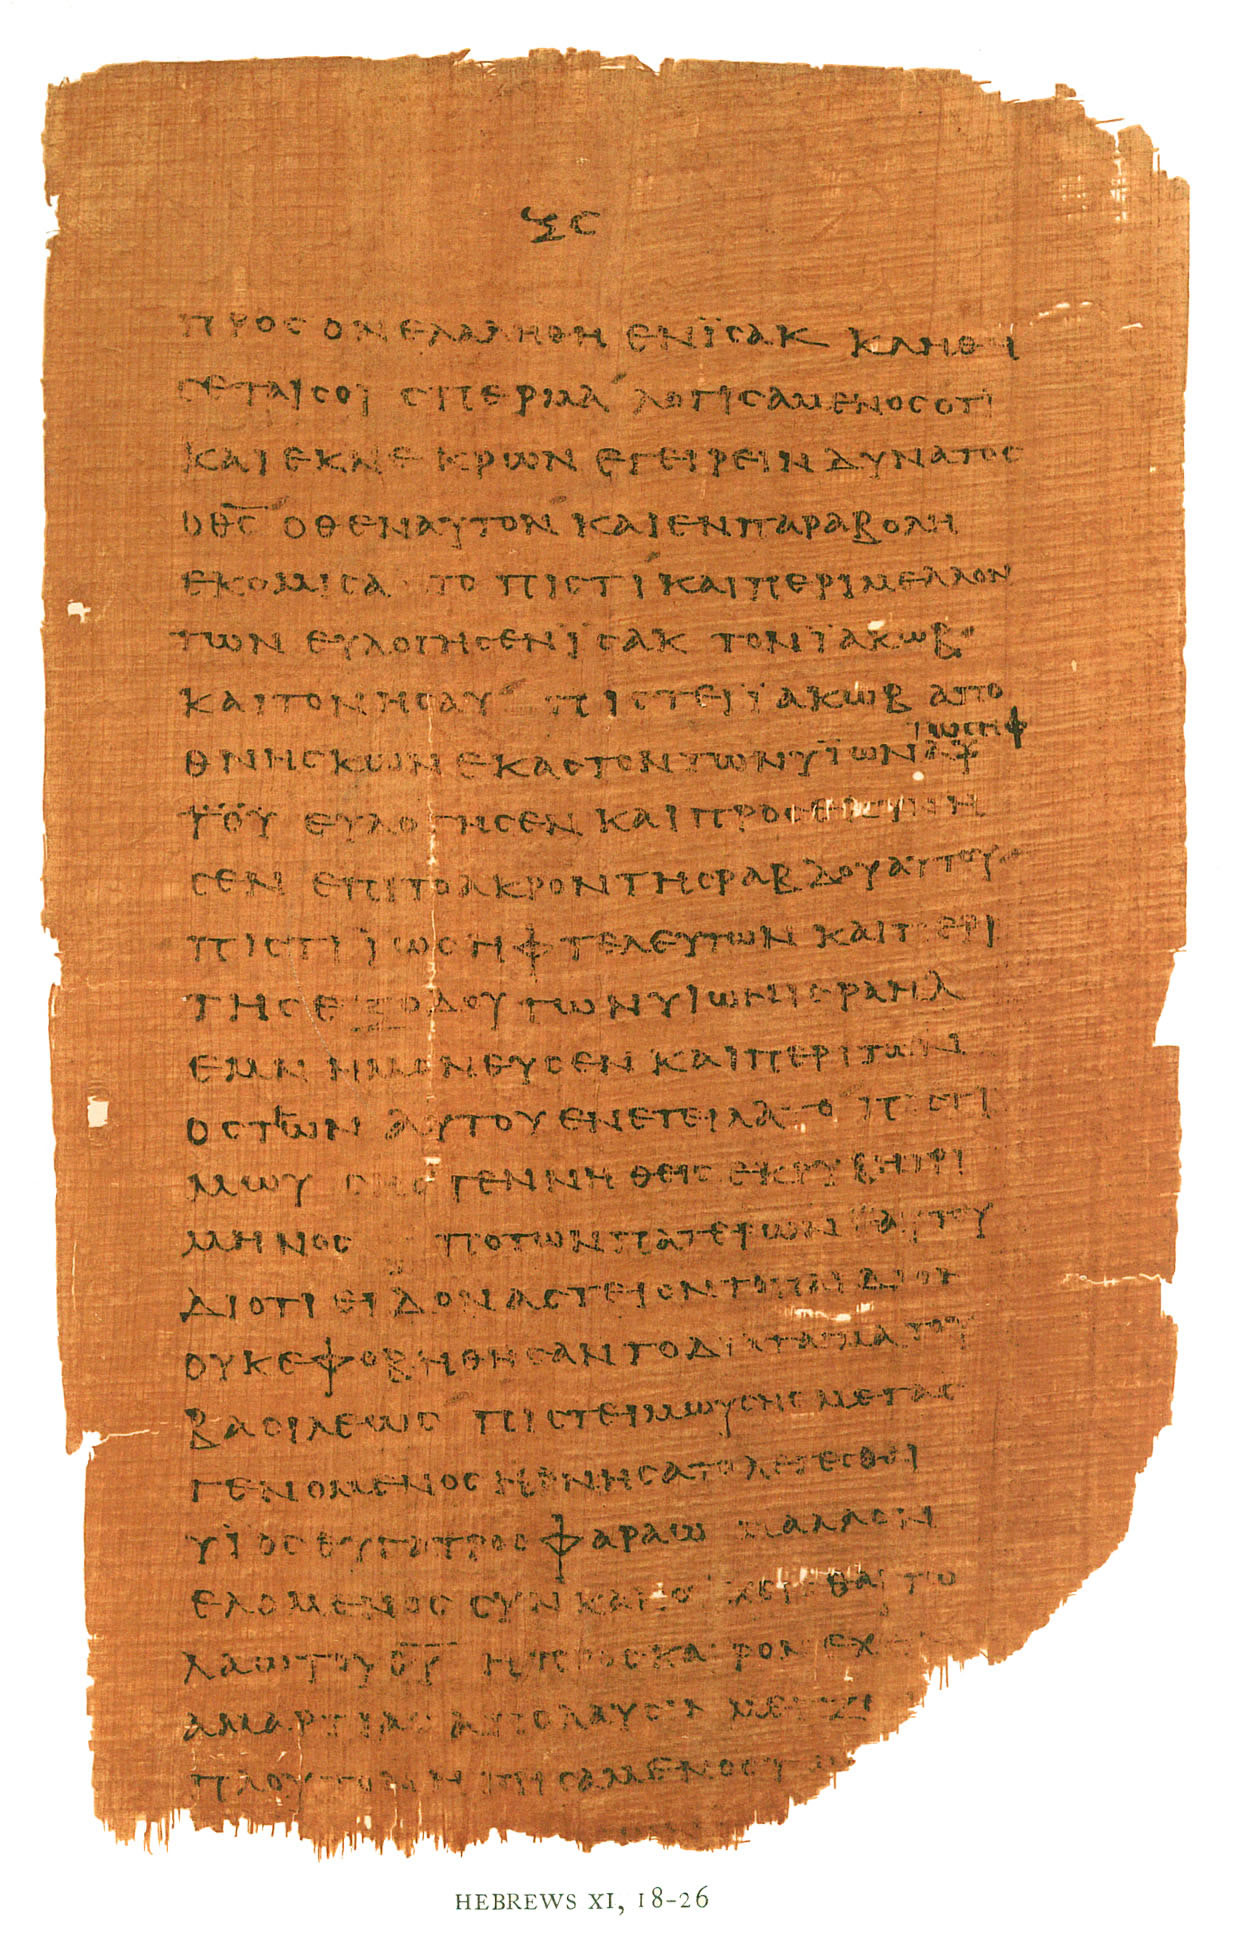 ξς
προσονελαληθη ενϊσακ κληθη
σεταισοι σπερμα λογισαμενοσοτι
καιεκνεκρων εγειρειν δυνατος
οθ̅ς̅ οθεναυτον καιενπαραβολη
εκομισατο πιστι καιπεριμελλον
των ευλογησενϊσακ τονϊακωβ
καιτονησαυ πιστειϊακωβ απο
ϊωσηφ
θνησκωνεκαστοντωνυϊων
ευλογησεν καιπροσεκυνη
σεν επιτοακροντησραβδουαυτου
πιστιϊωσηφτελευτων καιπερι
τησεξοδου τωνυιωνισραηλ
εμνημονευσεν καιπεριτων
οστεων αυτουενετειλατο πιστι
μωυσησγεννηθεισεκρυβητρι
μηνος ποτωνπατερωναυτου
διοτι ειδοναστειοντοπαιδιον
ουκεφοβηθησαντοδιαταγματου
βασιλεως πιστειμωυσησμεγας
γενομενοσηρνησατολεγεσθαι
υϊοσθυγατροσφαραω μαλλον
ελομενος συνκακουχεισθαιτω
λαωτουθ̅υ̅ ηπροσκαιρονεχ
αμαρτιασαπολαυσιν μειζ
πλουτονηγησαμενοστ
HEBREWS XI, 18-26